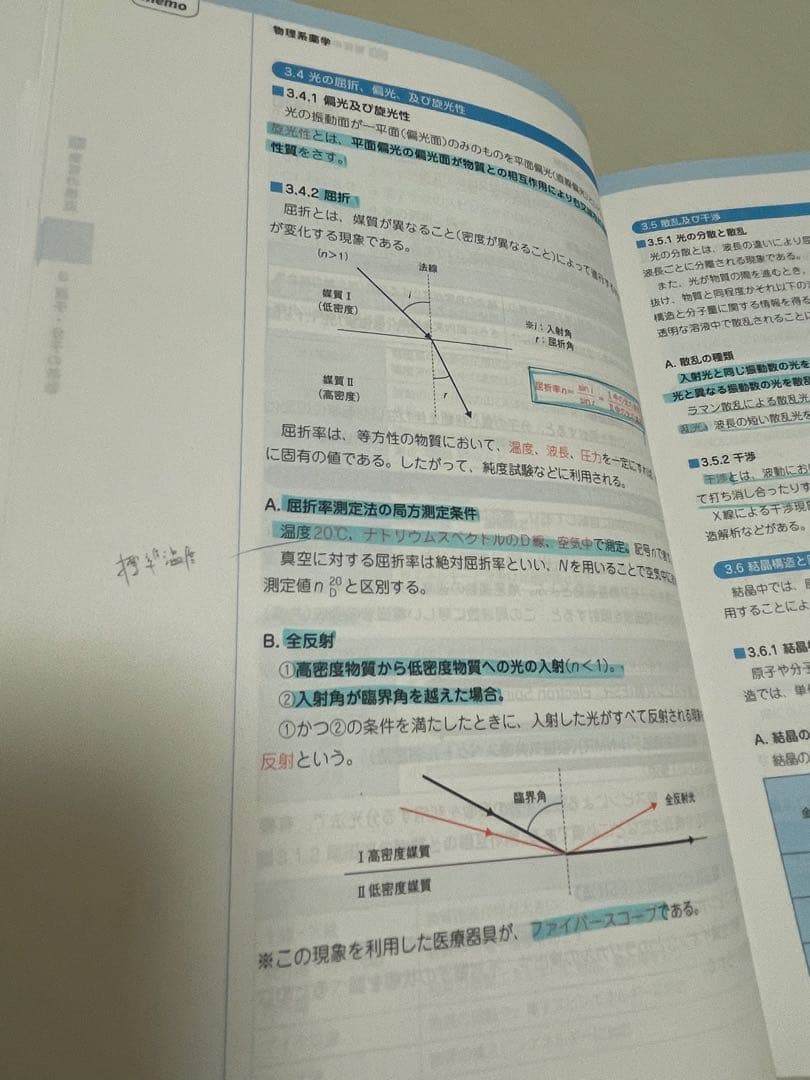 memo
物理系薬学
3.4 光の屈折、偏光、及び旋光性
■3.4.1 偏光及び旋光性
光の振動面が一平面(偏光面)のみのものを平面偏光(直線偏光)と
旋光性とは、平面偏光の偏光面が物質との相互作用により
性質をさす。
■3.4.2 屈折
屈折とは、媒質が異なること(密度が異なること)によって
が変化する現象である。
(n>1)
法線
媒質Ⅰ
(低密度)
i
※i:入射角
r:屈折角
媒質Ⅱ
(高密度)
r
屈折率n= sin i
屈折率は、等方性の物質において、温度、波長、圧力を一定にすれば
に固有の値である。したがって、純度試験などに利用される。
A. 屈折率測定法の局方測定条件
温度20℃、ナトリウムスペクトルのD線、空気中で測定。記号nで
標準温度
真空に対する屈折率は絶対屈折率といい、Nを用いることで空気中に
測定値n 20 D と区別する。
B. 全反射
①高密度物質から低密度物質への光の入射(n<1)。
②入射角が臨界角を越えた場合。
①かつ②の条件を満たしたときに、入射した光がすべて反射される現象
反射という。
臨界角
全反射光
Ⅰ高密度媒質
Ⅱ低密度媒質
※この現象を利用した医療器具が、ファイバースコープである。
3.5 散乱及び干渉
■3.5.1 光の分散と散乱
光の分散とは、波長の違いにより屈
波長ごとに分離される現象である。
また、光が物質の間を進むとき、
抜け、物質と同程度かそれ以下の
構造と分子量に関する情報を得る
透明な溶液中で散乱されることに
A. 散乱の種類
入射光と同じ振動数の光を
光と異なる振動数の光を散乱
ラマン散乱による散乱光
乱光。波長の短い散乱光を
■3.5.2 干渉
干渉とは、波動にお
て打ち消し合ったりす
X線による干渉現
造解析などがある。
3.6 結晶構造と
結晶中では、
用することによ
■3.6.1 結
原子や分子
造では、単
A. 結晶の
結晶の